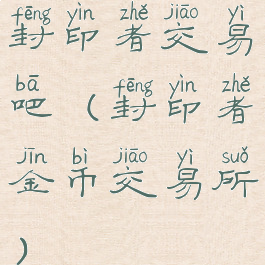 fēng yìn zhě jiāo yì
封印者交易
bā fēng yìn zhě
吧（封印者
jīn bì jiāo yì suǒ
金币交易所
）